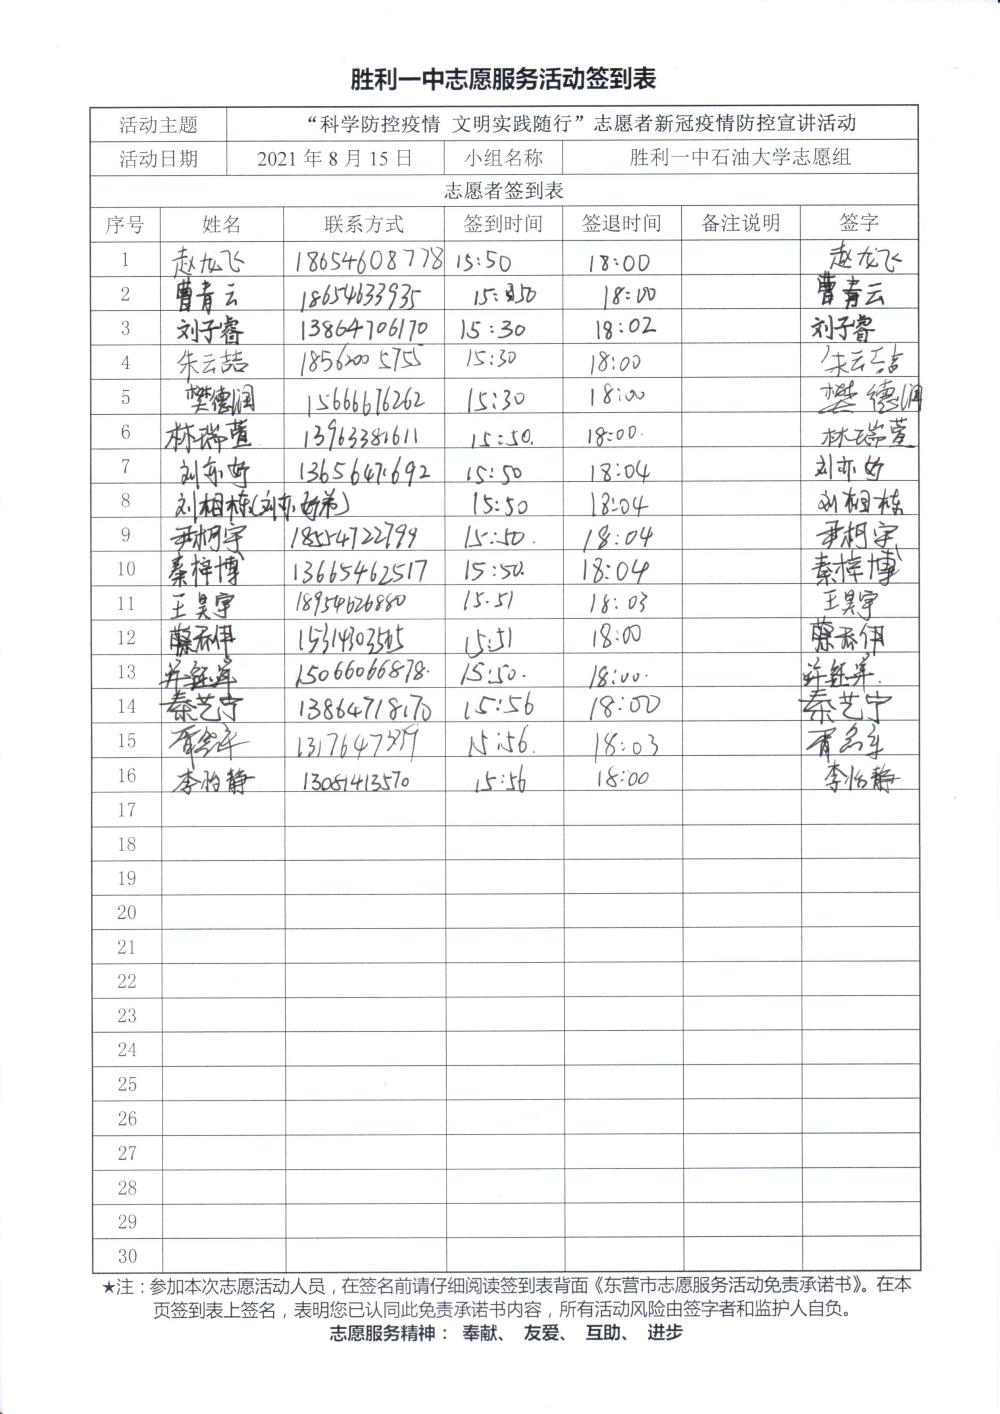 胜利一中志愿服务活动签到表
活动主题 “科学防控疫情 文明实践随行”志愿者新冠疫情防控宣讲活动
活动日期 2021年8月15日 小组名称 胜利一中石油大学志愿组
志愿者签到表
序号 姓名 联系方式 签到时间 签退时间 备注说明 签字
1 赵龙飞 18654608778 15:50 18:00 赵龙飞
2 曹青云 18654633935 15:50 18:00 曹青云
3 刘子睿 13864706170 15:30 18:02 刘子睿
4 朱云喆 18562005755 15:30 18:00 朱云喆
5 樊德润 15666676262 15:30 18:00 樊德润
6 林瑞萱 13963381611 15:50. 18:00. 林瑞萱
7 刘亦好 13656471692 15:50 18:04 刘亦好
8 刘相栋(刘亦好弟) 15:50 18:04 刘相栋
9 尹柯宇 18554722799 15:50. 18:04 尹柯宇
10 秦梓博 13665462517 15:50. 18:04 秦梓博
11 王昊宇 18954626880 15.51 18:03 王昊宇
12 15:51 18:00
13 15066066878. 15:50. 18:00.
14 秦艺宁 13864718170 15:56 18:00 秦艺宁
15 15:56. 18:03
16 李怡静 13081413570 15:56 18:00 李怡静
17
18
19
20
21
22
23
24
25
26
27
28
29
30
★注：参加本次志愿活动人员，在签名前请仔细阅读签到表背面《东营市志愿服务活动免责承诺书》。在本
页签到表上签名，表明您已认同此免责承诺书内容，所有活动风险由签字者和监护人自负。
志愿服务精神： 奉献、 友爱、 互助、 进步